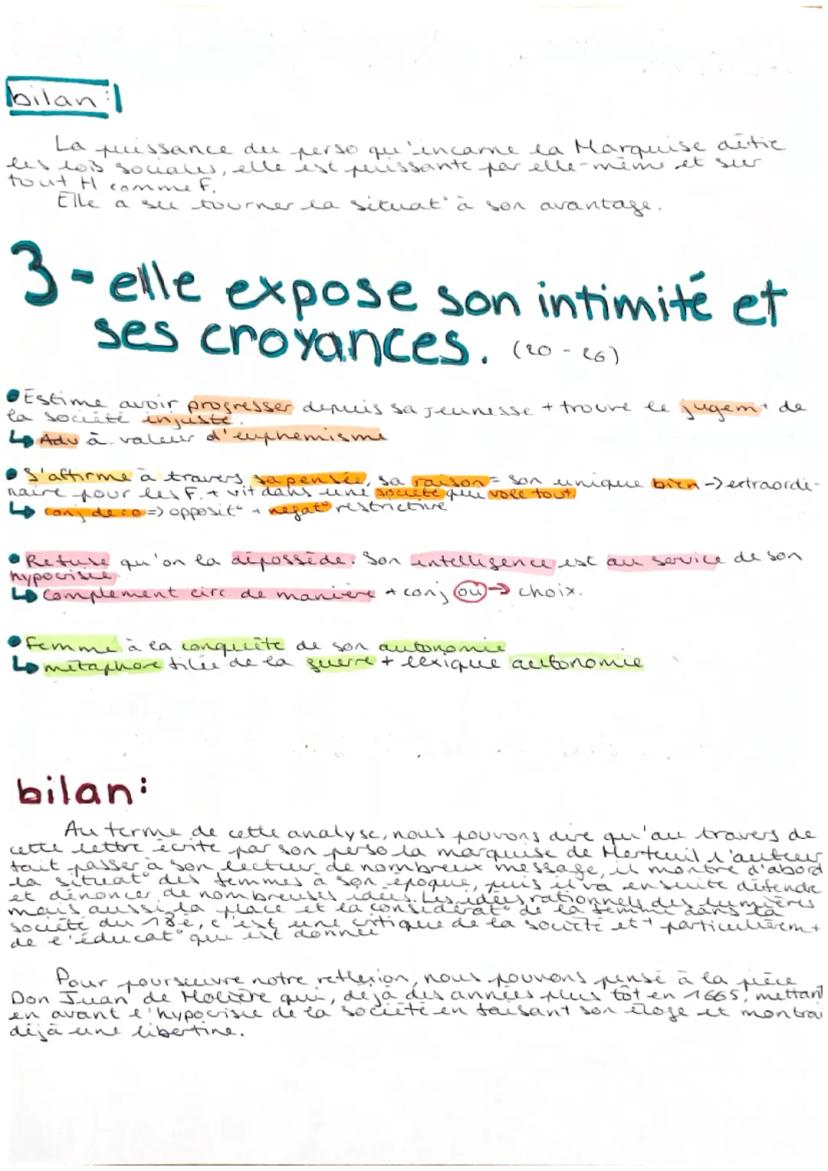 bilan :
La puissance du perso qu'incarne la Marquise défie
les lois sociales, elle est puissante par elle-même et sur
tout H comme F.
Elle a su tourner la situat° à son avantage.
3 - elle expose son intimité et
ses croyances. (20 - 26)
• Estime avoir progresser depuis sa jeunesse + trouve le jugem^t de
la société injuste.
↳ Adv à valeur d'euphémisme
• S'affirme à travers sa pensée, sa raison = son unique bien → extraordi-
naire pour les F. + vit dans une société qui vole tout.
↳ conj de co => opposit° + négat° restrictive
• Refuse qu'on la dépossède. Son intelligence est au service de son
hypocrisie
↳ complement circ de manière + conj ou → choix.
• Femme à la conquête de son autonomie
↳ métaphore filée de la guerre + lexique autonomie
bilan :
Au terme de cette analyse, nous pouvons dire qu'au travers de
cette lettre écrite par son perso la marquise de Merteuil l'auteur
fait passer à son lecteur de nombreux message, il montre d'abord
la situat° des femmes à son époque, puis il va ensuite défendre
et dénoncer de nombreuses idées. Les idées rationnels des lumières
mais aussi la place et la considérat° de la femme dans la
société du 18è, c'est une critique de la société et + particulièrem^t
de l'éducat° qui est donnée
Pour poursuivre notre reflexion, nous pouvons pensé à la pièce
Don Juan de Molière qui, déjà des années plus tôt en 1665, mettant
en avant l'hypocrisie de la société en faisant son éloge et montrai
déjà une libertine.